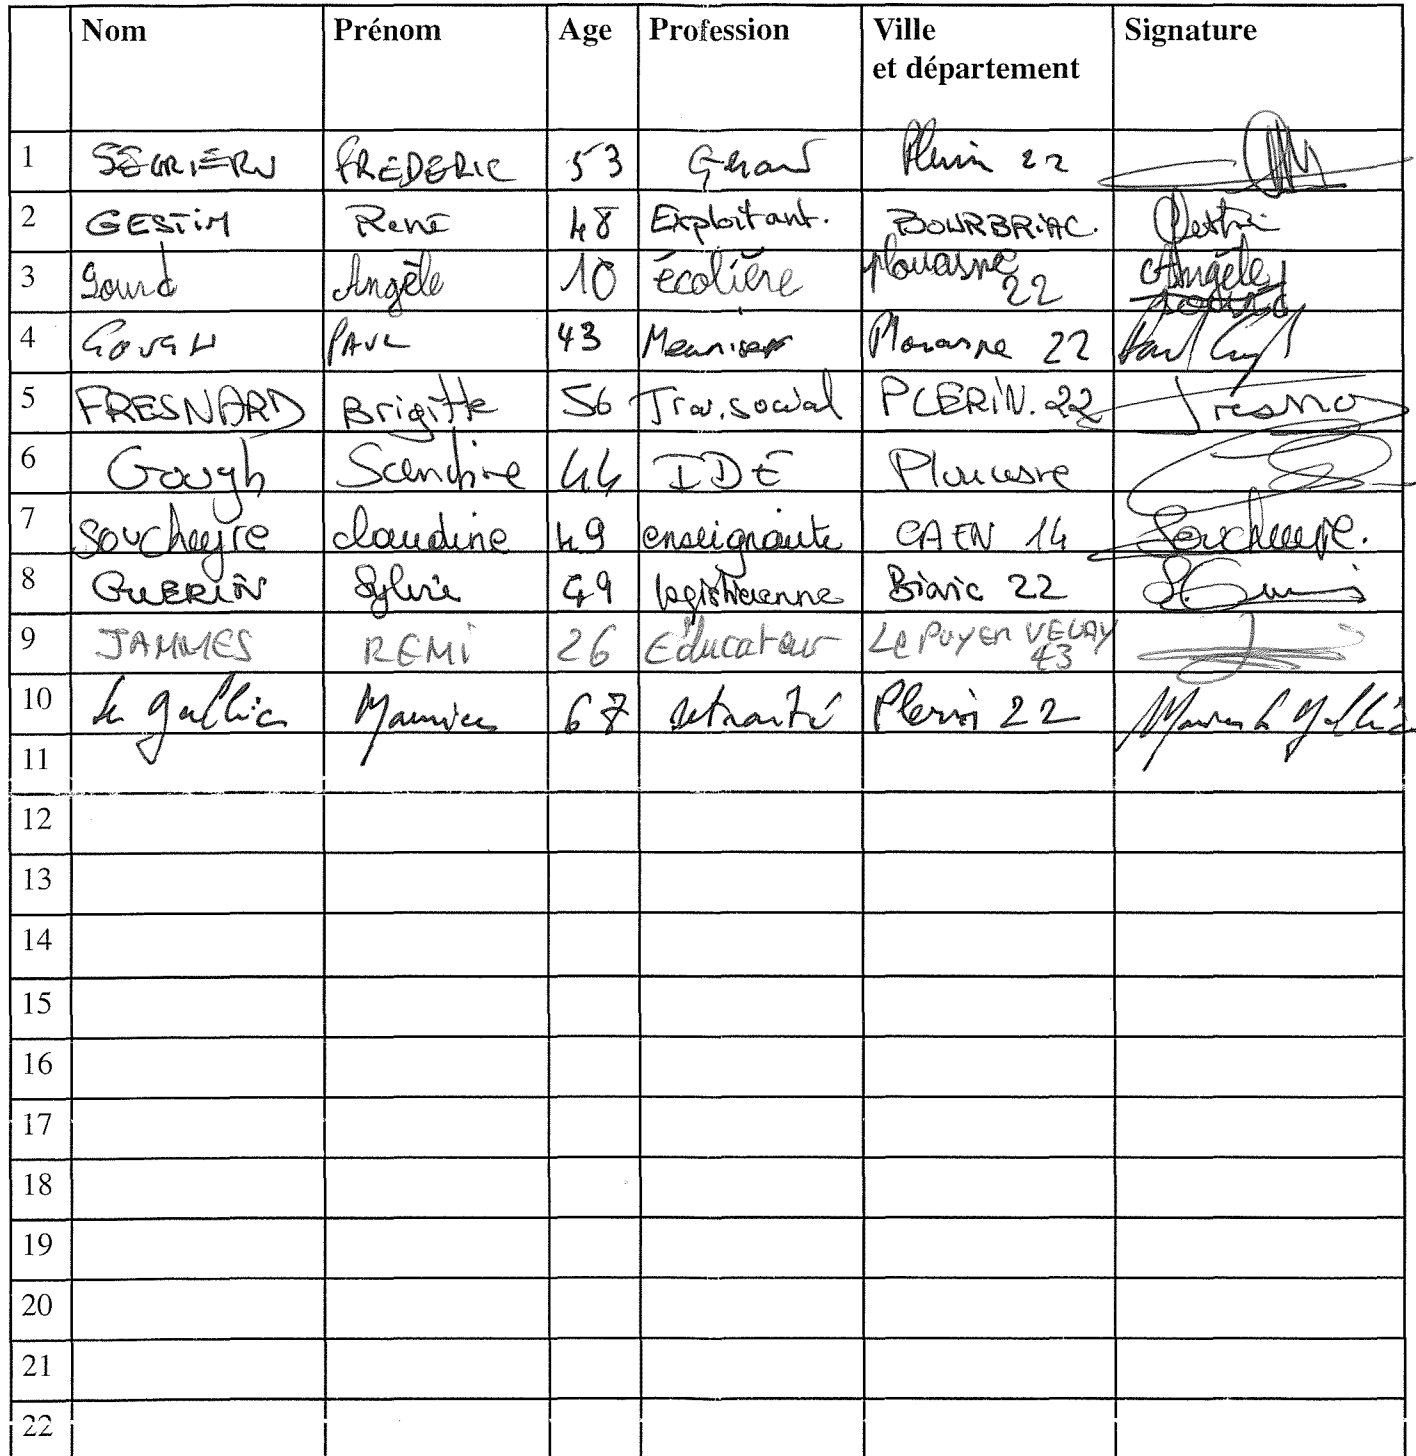 Nom Prénom Age Profession Ville Signature
et département
1 FREDERIC 53 Plerin 22
2 GESTIN René 48 Exploitant. BOURBRIAC. Gestin
3 Gourd Angèle 10 écolière plouasne 22 Angèle
4 GOUGH PAUL 43 Meunier Plouasne 22
5 FRESNARD Brigitte 56 Trav. social PLERIN. 22 Fresnard
6 Gough Sandrine 44 IDE Plouasne
7 Soucheyre claudine 49 enseignante CAEN 14 Soucheyre.
8 GUERIN Sylvie 49 logisticienne 22
9 JAMMES REMI 26 Educateur Le PUY EN VELAY 43
10 Le Gallic Maurice 67 retraité Plerin 22 Maurice Le Gallic
11
12
13
14
15
16
17
18
19
20
21
22